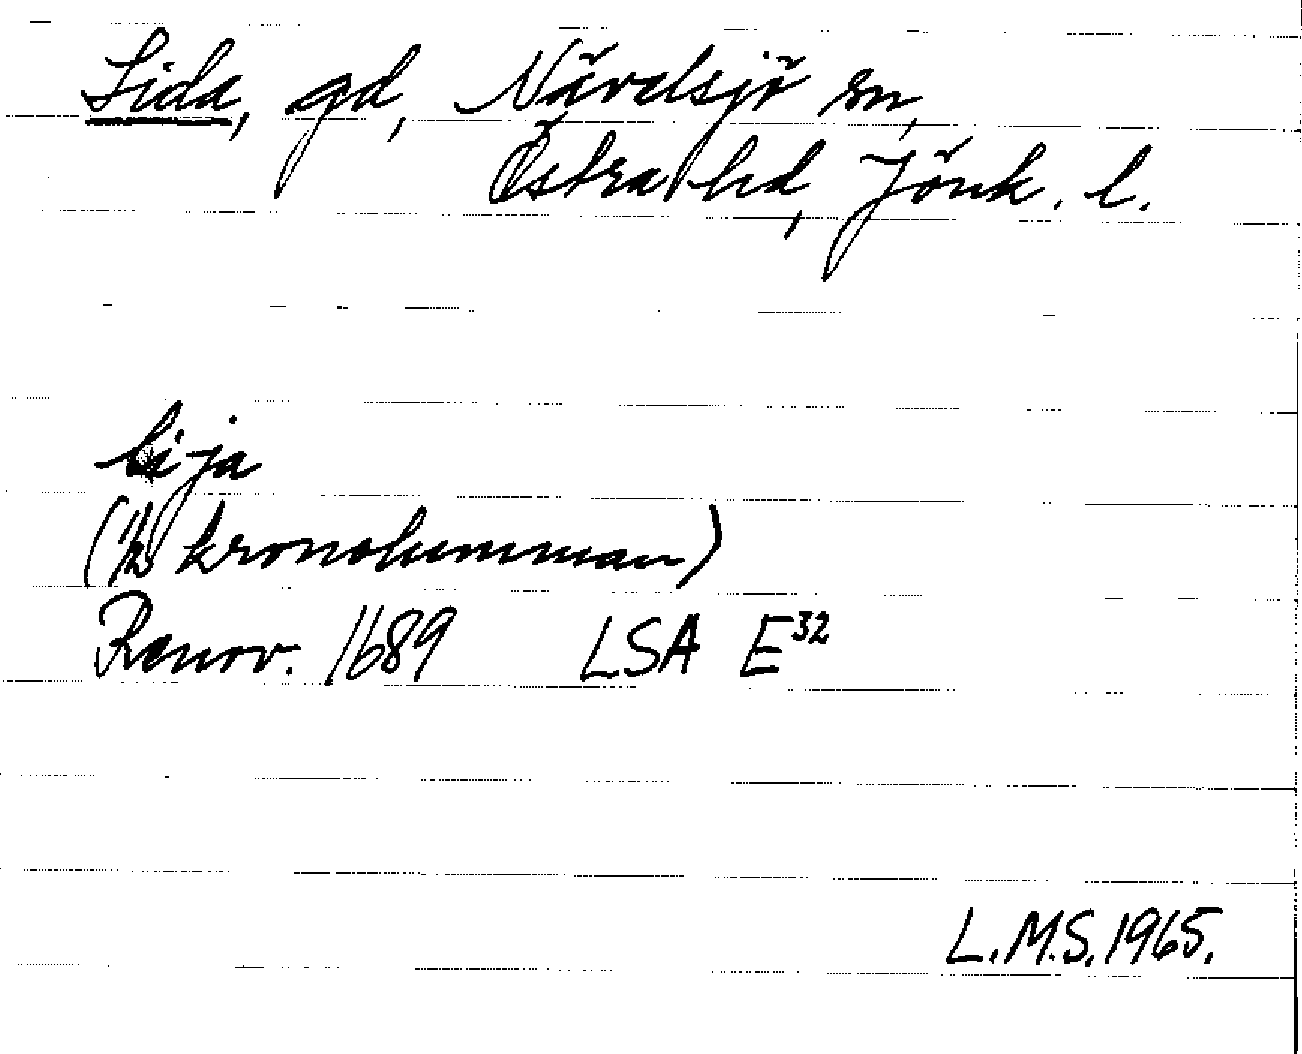 Lida, gd, Nävelsjö sn,
Östra hd, Jönk. l.
lija
(1/2 kronohemman)
Renov. 1689 LSA E32
L.M.S. 1965.